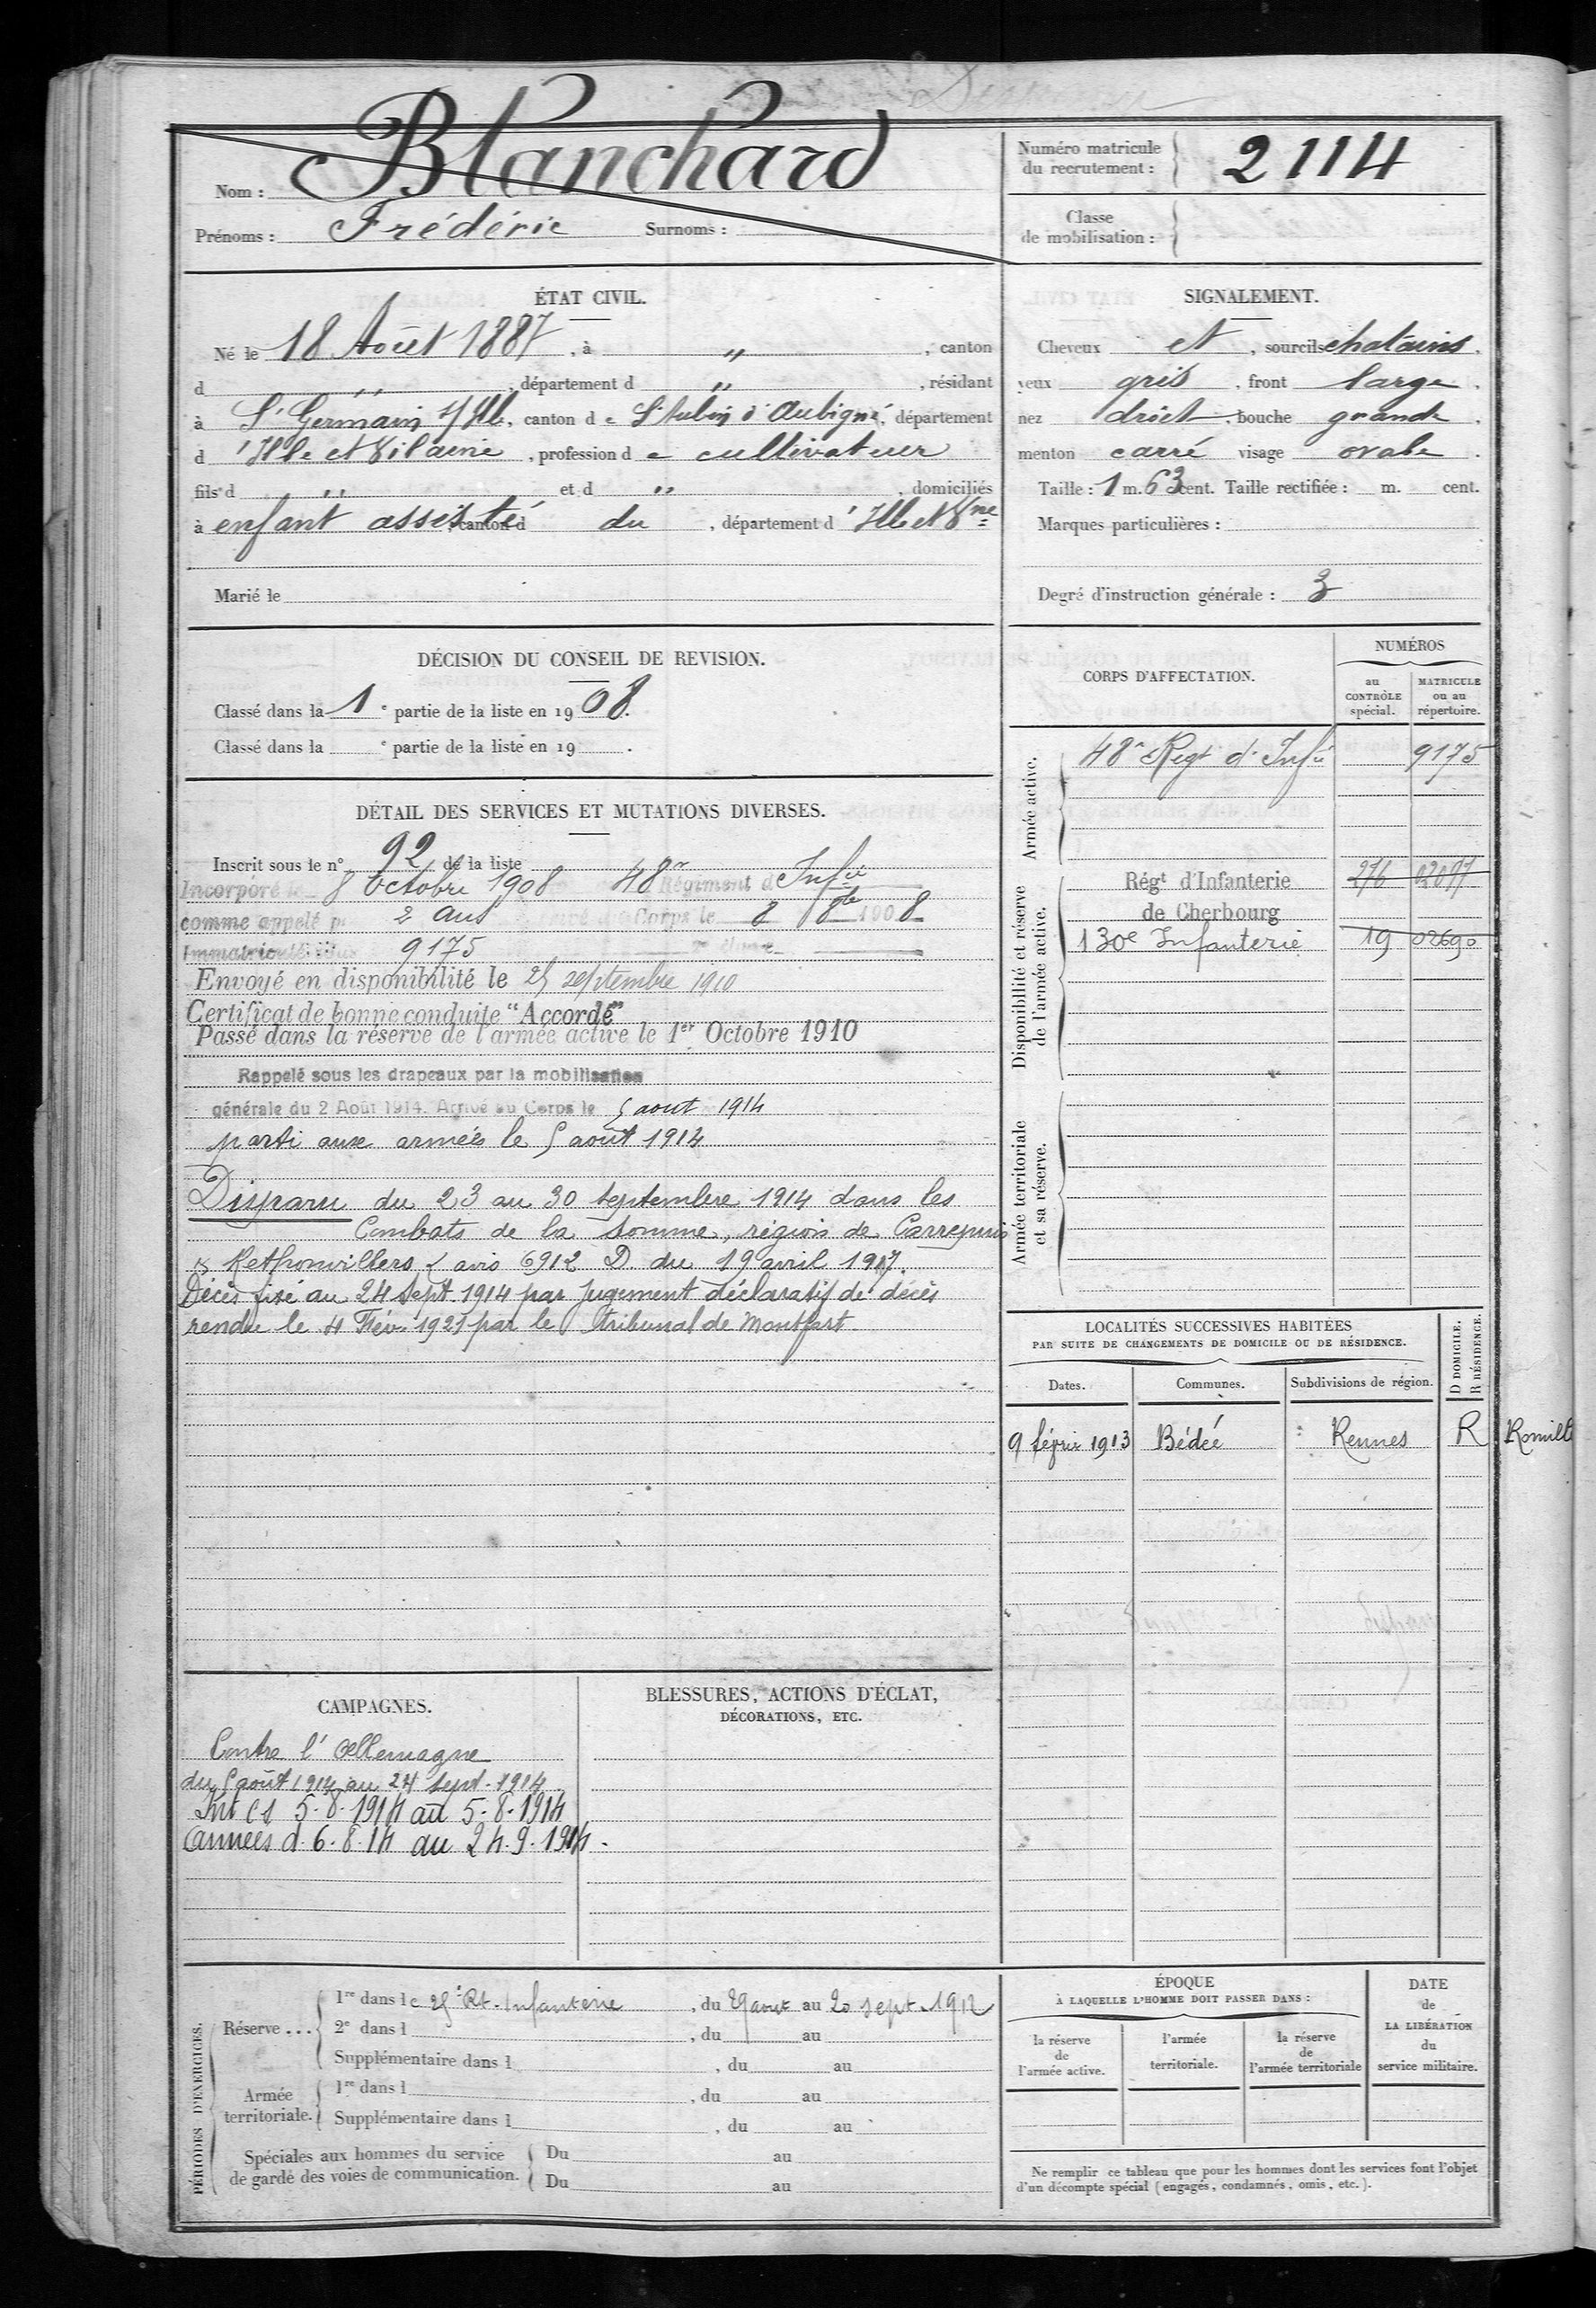 Blanchard
Nom :
Prénoms : Frédéric Surnoms :
Numéro matricule
du recrutement : 2114
Classe
de mobilisation :
ÉTAT CIVIL.
Né le 18 Août 1887, à " , canton
d " , département d " , résidant
à St Germain s/Ille, canton de St Aubin d'Aubigné, département
d 'Ille et Vilaine, profession de cultivateur
fils d " et d " , domiciliés
à enfant assisté canton d du , département d 'Ille et Vne
Marié le
SIGNALEMENT.
Cheveux et , sourcils chatains.
yeux gris , front large .
nez droit , bouche grande .
menton carré visage ovale .
Taille : 1 m. 63 cent. Taille rectifiée : m. cent.
Marques particulières :
Degré d'instruction générale : 3
DÉCISION DU CONSEIL DE REVISION.
Classé dans la 1e partie de la liste en 1908.
Classé dans la e partie de la liste en 19 .
DÉTAIL DES SERVICES ET MUTATIONS DIVERSES.
Inscrit sous le n° 92 de la liste
Incorporé le 8 Octobre 1908 48e Régiment d'Infie
comme appelé p 2 ans Corps le 8 8bre 1908
Immatriculé 9175
Envoyé en disponibilité le 25 septembre 1910
Certificat de bonne conduite "Accordé"
Passé dans la réserve de l'armée active le 1er Octobre 1910
Rappelé sous les drapeaux par la mobilisation
générale du 2 Août 1914. Arrivé au Corps le 5 aout 1914
parti aux armées le 5 août 1914
Disparu du 23 au 30 septembre 1914 dans les
Combats de la Somme, région de Carrepuis
& Rethonvillers avis 6912 D. du 19 avril 1917.
Décès fixé au 24 Sept. 1914 par Jugement déclaratif de décès
rendu le 4 Fév. 1921 par le tribunal de Montfort
CORPS D'AFFECTATION.
NUMÉROS
au
CONTRÔLE
spécial.
MATRICULE
ou au
répertoire.
Armée active.
48e Regt d'Infie 9175
Disponibilité et réserve
de l'armée active.
Régt d'Infanterie 276 02097
de Cherbourg
130e Infanterie 19 02690
Armée territoriale
et sa réserve.
LOCALITÉS SUCCESSIVES HABITÉES
PAR SUITE DE CHANGEMENTS DE DOMICILE OU DE RÉSIDENCE.
D DOMICILE.
R RÉSIDENCE.
Dates. Communes. Subdivisions de région.
9 février 1913 Bédée Rennes R
CAMPAGNES.
Contre l'Allemagne
du 5 août 1914 au 24 Sept. 1914
5.8.1914 au 5.8.1914
armées d. 6.8.14 au 24.9.1914.
BLESSURES, ACTIONS D'ÉCLAT,
DÉCORATIONS, ETC.
PÉRIODES D'EXERCICES.
Réserve ...
1re dans le 25e Rt Infanterie , du 29 aout au 20 sept. 1912
2e dans l , du au
Supplémentaire dans l , du au
Armée
territoriale.
1re dans l , du au
Supplémentaire dans l , du au
Spéciales aux hommes du service
de garde des voies de communication.
Du au
Du au
ÉPOQUE
À LAQUELLE L'HOMME DOIT PASSER DANS :
la réserve
de
l'armée active.
l'armée
territoriale.
la réserve
de
l'armée territoriale
DATE
de
LA LIBÉRATION
du
service militaire.
Ne remplir ce tableau que pour les hommes dont les services font l'objet
d'un décompte spécial (engagés, condamnés, omis, etc.).